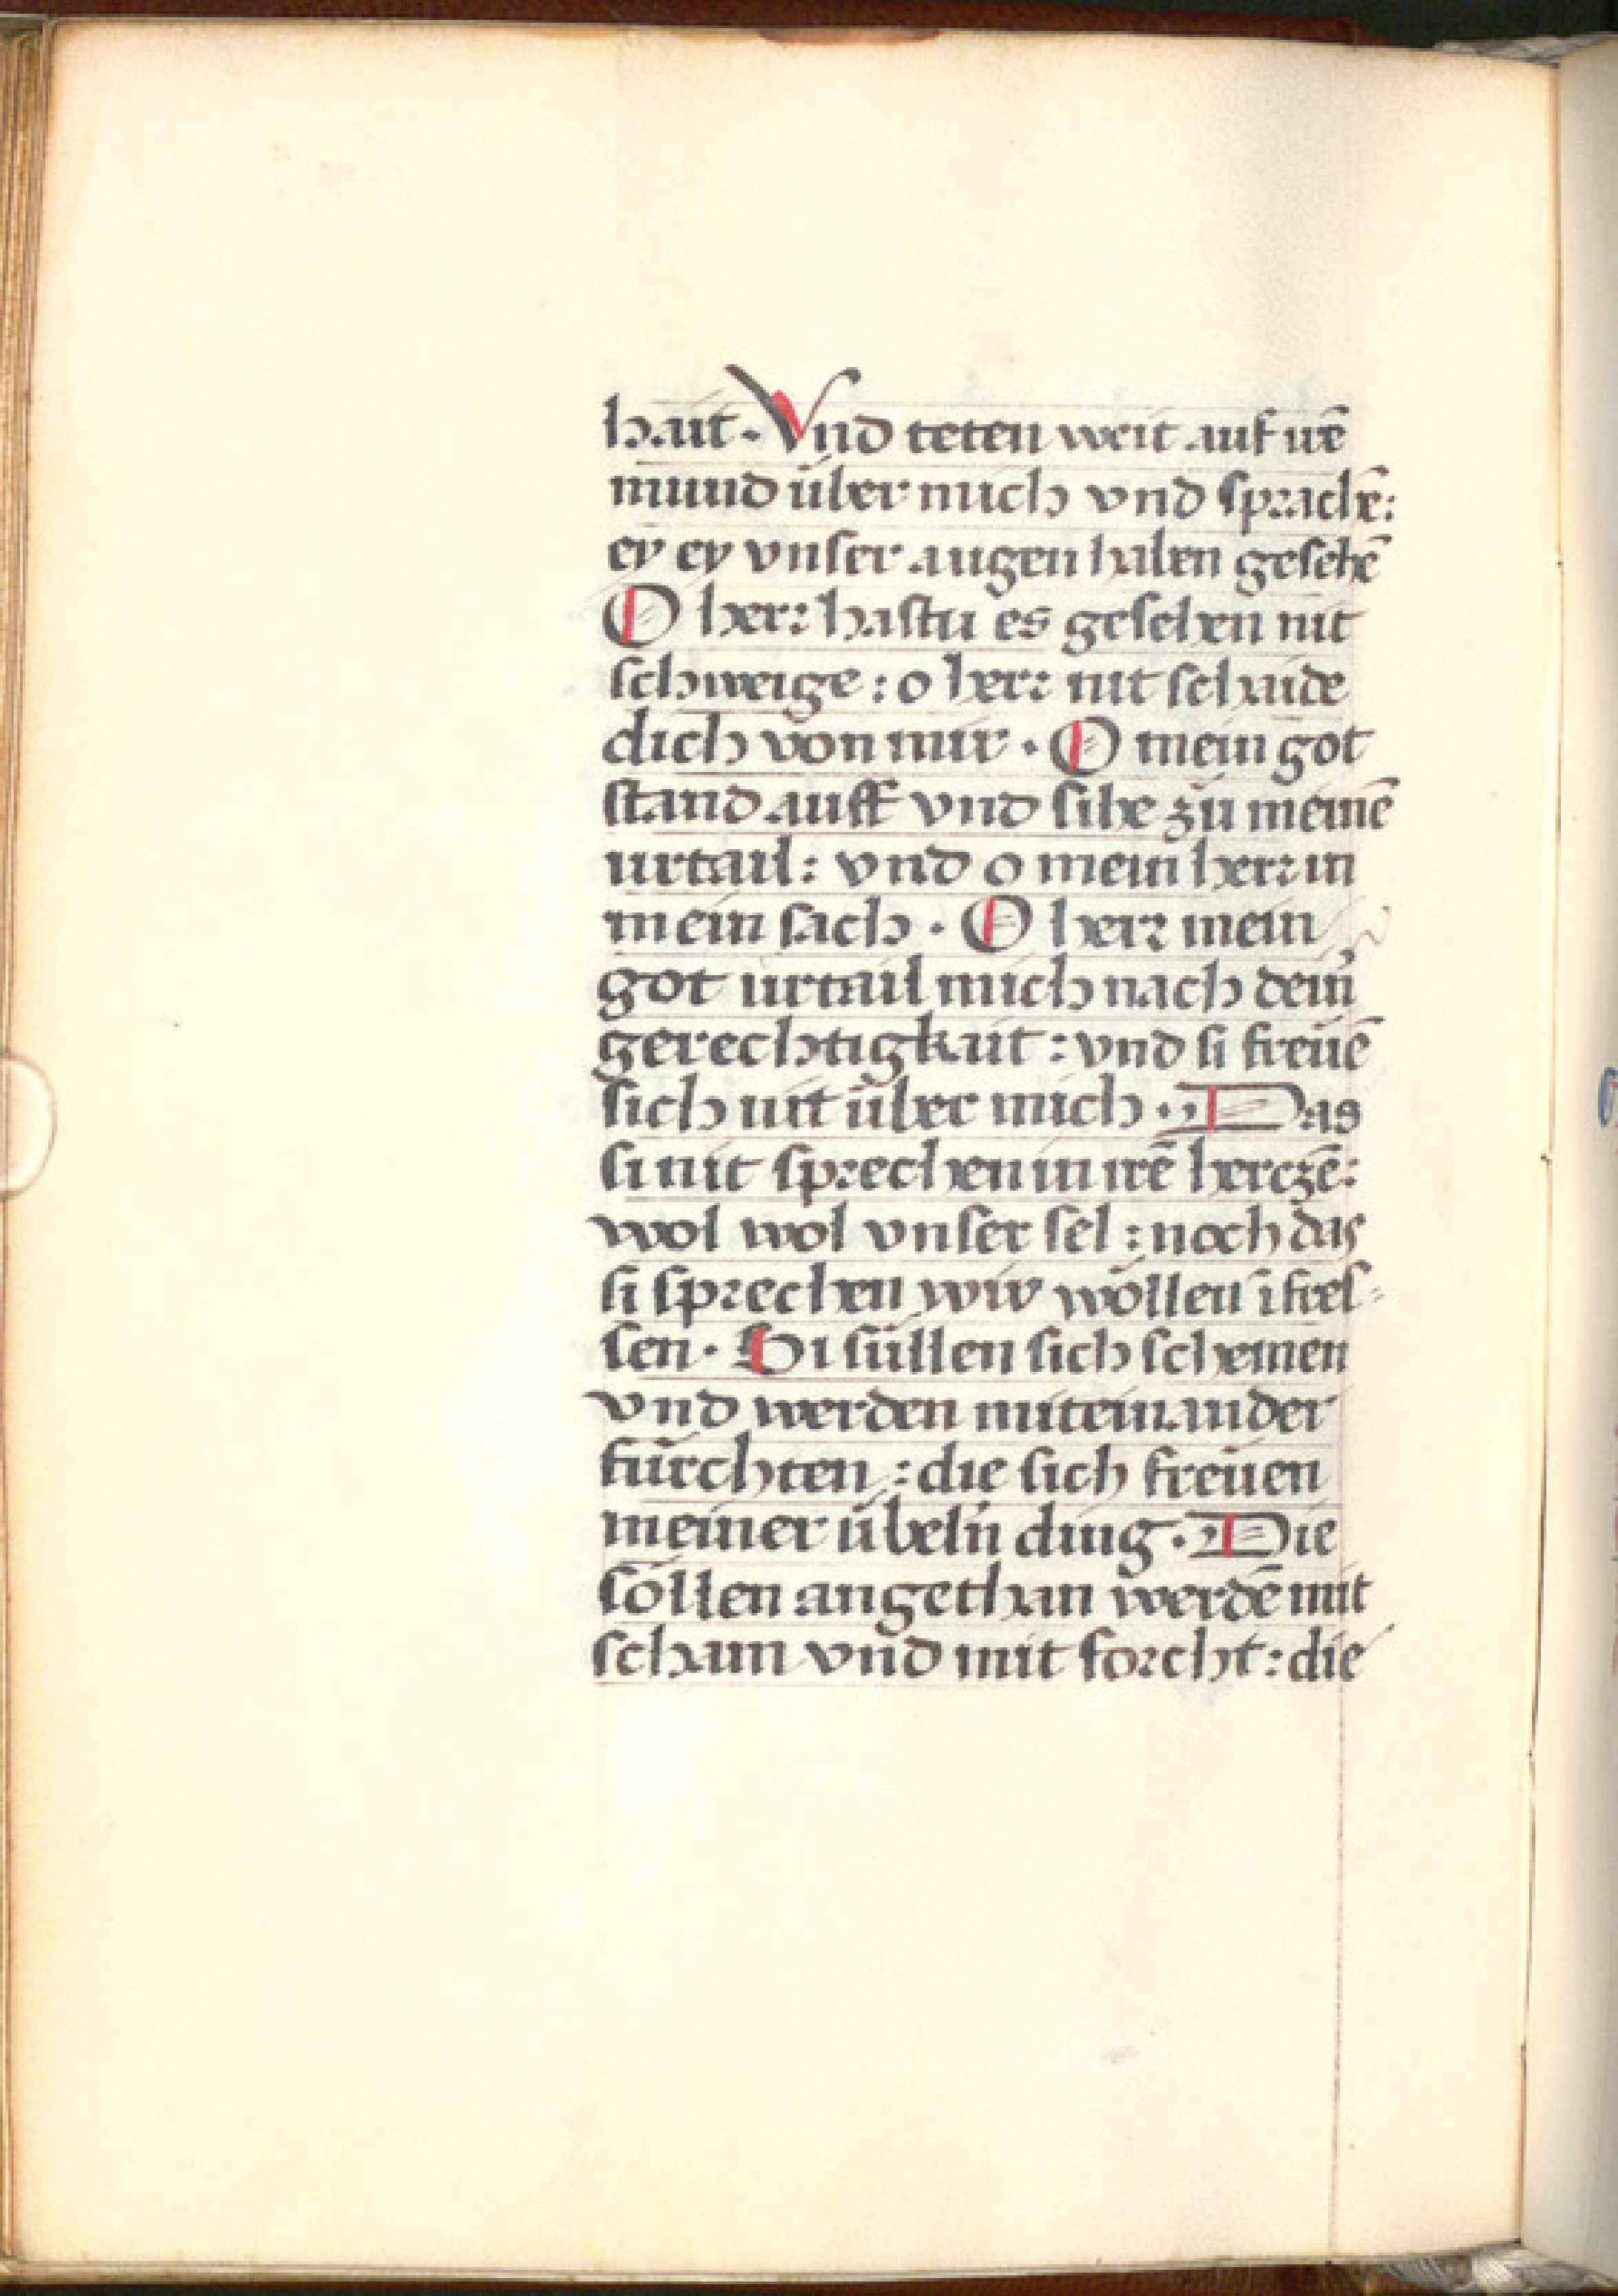 hait · Vnd teten weit auf irē
mund über mich vnd sprachē:
ey ey vnser augen haben gesehē
O herr hastu es gesehen nit
schweige : o herr nit schaide
dich von mir · O mein got
stand auff vnd sihe zů meinē
urtail : vnd o mein herr in
mein sach · O herr mein
got urtail mich nach deiner
gerechtigkait : vnd si freüē
sich nit über mich · Das
si nit sprechen in irē herczē:
wol wol vnser sel : noch das
si sprechen wir wöllen i fres-
sen · Si süllen sich schemen
vnd werden miteinander
fürchten : die sich freüen
meiner übeln ding · Die
söllen angethan werdē mit
scham vnd mit forcht : die